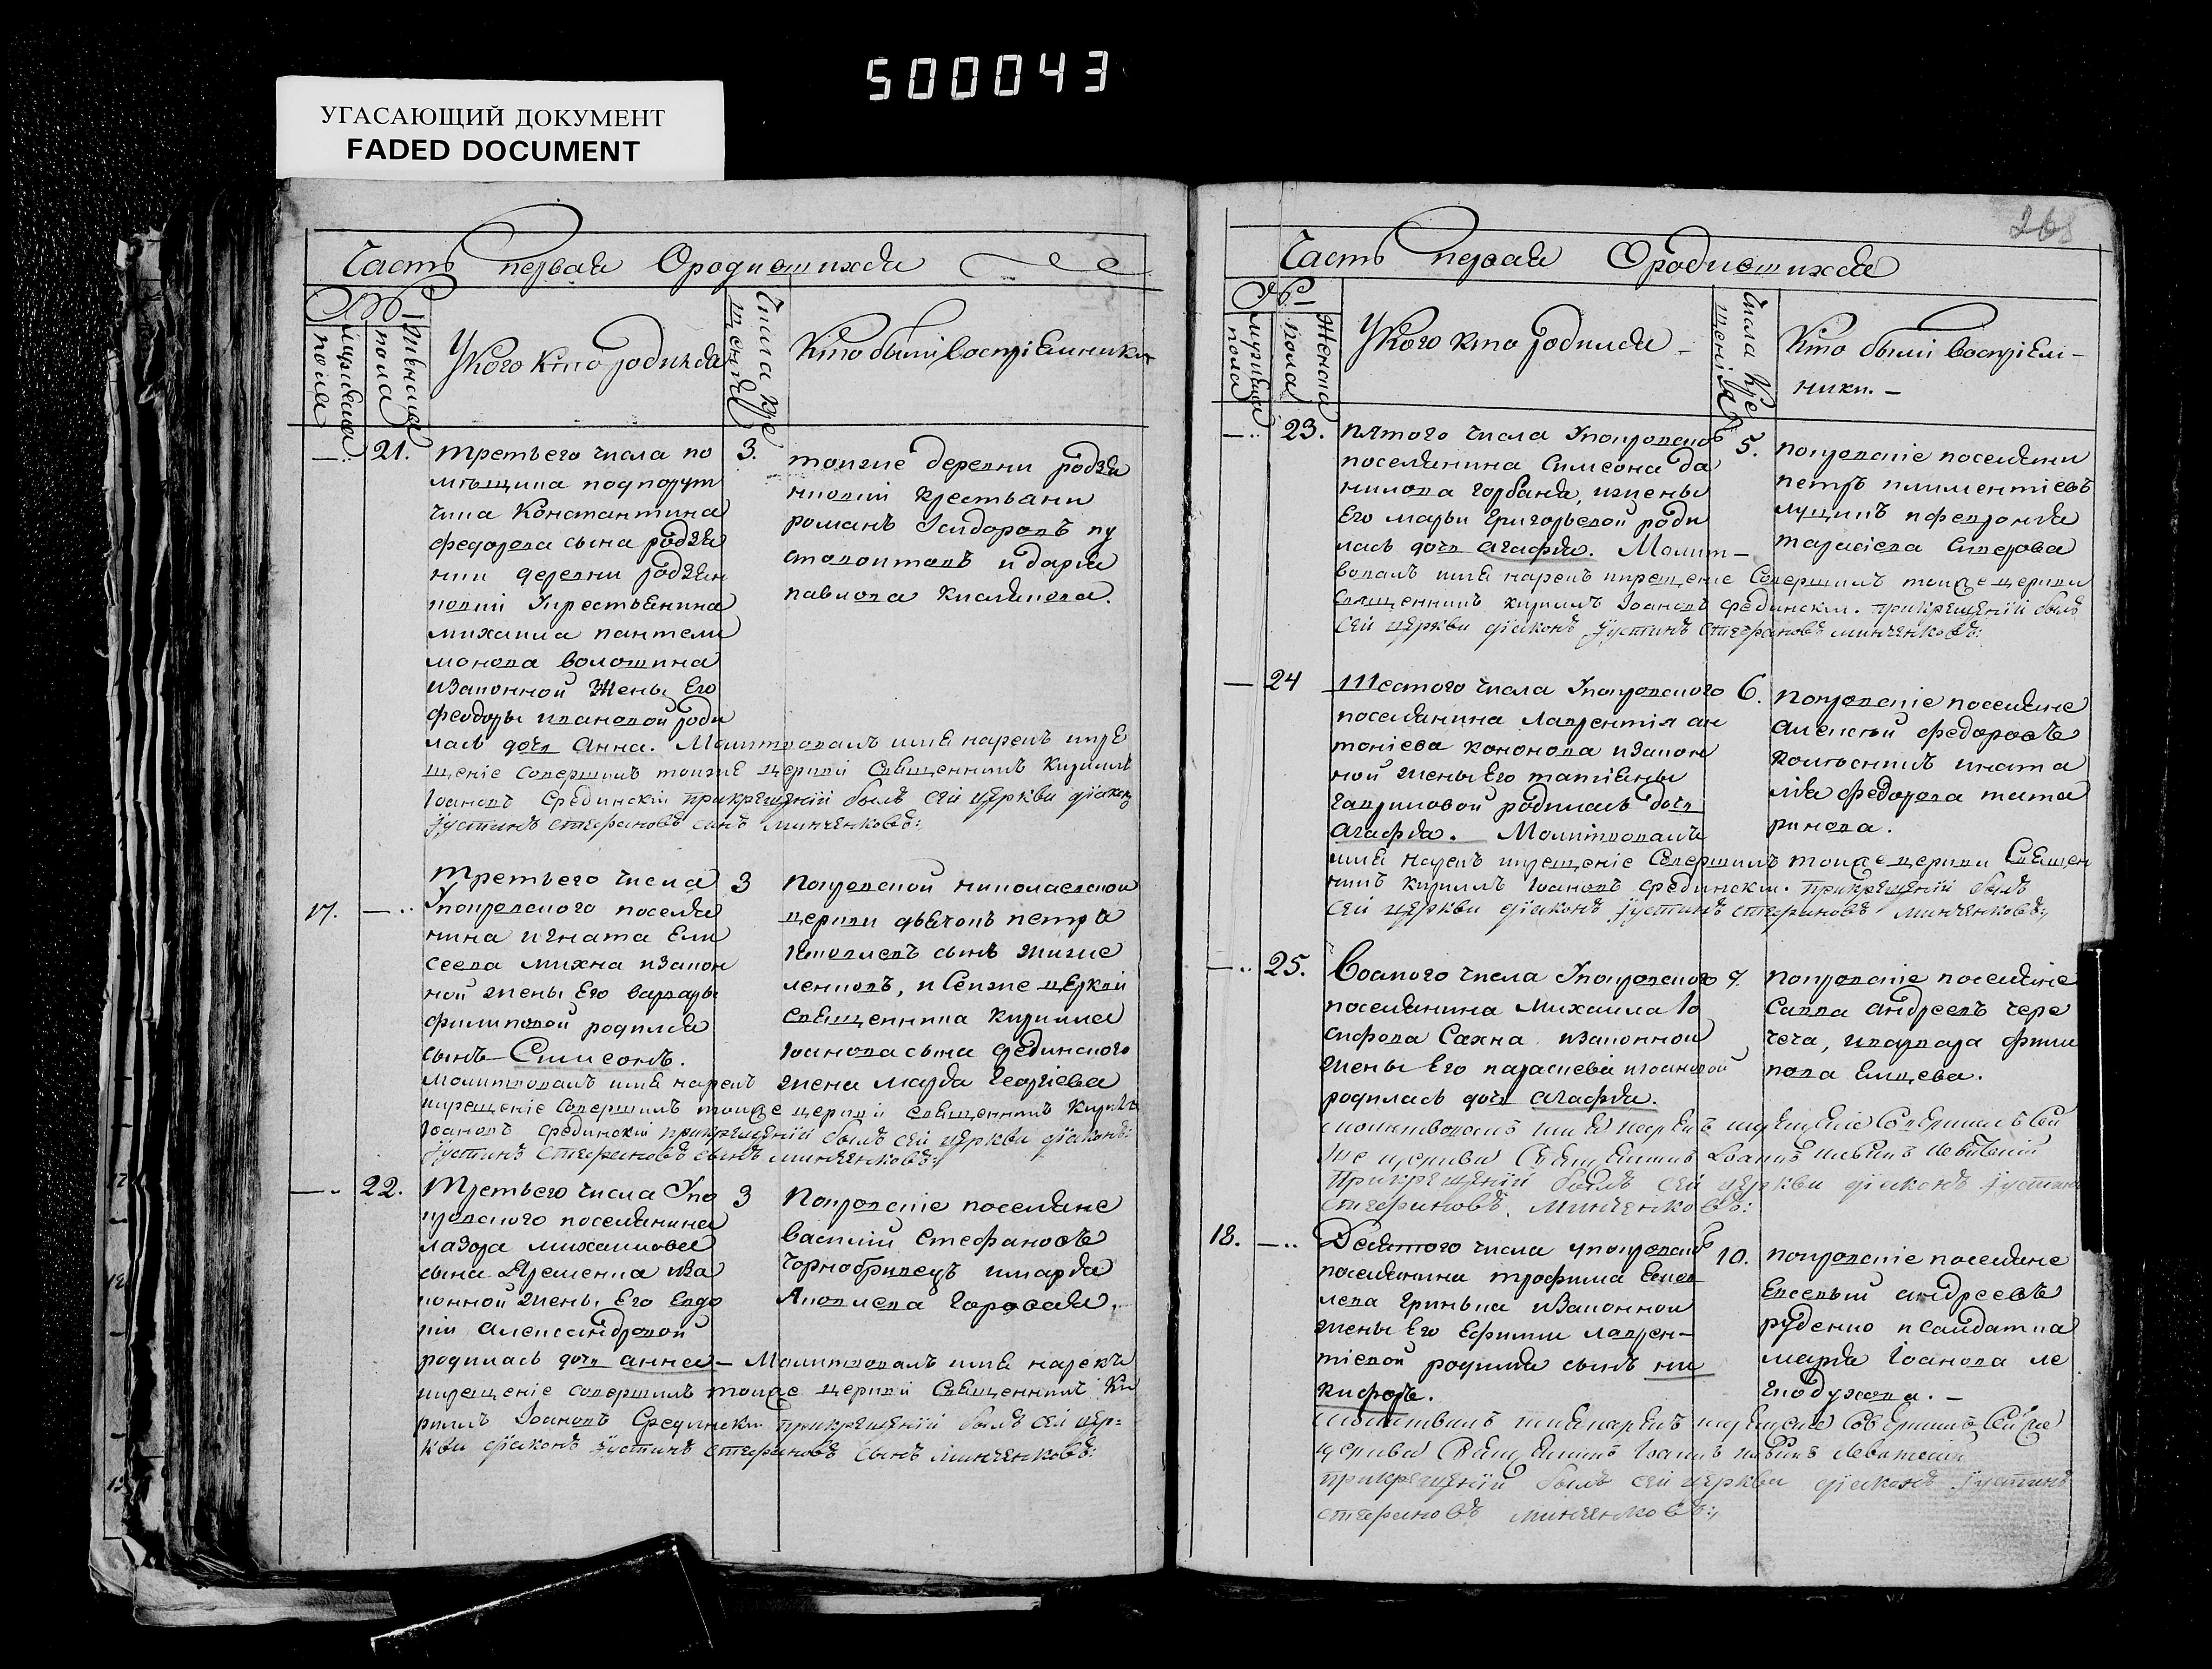 500043
УГАСАЮЩИЙ ДОКУМЕНТ
FADED DOCUMENT
Часть первая Ородившихся
№
мужеска пола
женска пола
Укого кто родился
Числа крещенія
Кто были воспріемники
21.
третьего числа по
мѣщика подпорут
чика Константина
федорова сына родзя
нки деревни родзян
ковки укрестьянина
михаила пантели
монова волошина
изаконной жены Его
феодоры ивановой роди
лась дочь Анна. Молитвовалъ имя нарекъ икре
щеніе совершилъ тоиже церкви Священникъ Кириллъ
Іоановъ Срединскій прикрещеніи былъ сей церкви діаконъ
Іустинъ стефановъ сынъ минченковъ:
3.
тоиже деревни родзя
нковки крестьяни
романъ Исидоровъ пу
стовоитовъ идарія
павлова Кислякова.
17.
третьего числа
Упокровского поселя
нина игната Ели
сеева михна изакон
ной жены Его варвары
филиповой родился
сынъ Симеонъ.
молитвовалъ имя нарекъ
икрещеніе совершилъ тоиже церкви священникъ Кириллъ
Іоановъ срединскій прикрещеніи былъ сей церкви діаконъ
Іустинъ Стефановъ сынъ минченковъ:
3
Покровской николаевской
церкви дьячокъ петръ
Яковлевъ сынъ
исеиже церкви
священника Кирилла
іоанова сына срединского
жена марфа Георгіева
22.
Третьего числа Упо
кровского поселянина
лазора михаилова
сына Яременка иза
конной жены Его Евдо
кіи александровой
родилась дочь анна - Молитвовалъ имя нарекъ
икрещеніе совершилъ тоиже церкви Священникъ Ки
риллъ Іоановъ Срединскій прикрещеніи былъ сей цер=
кви діаконъ Іустинъ стефановъ сынъ минченковъ:
3
Покровскіе поселяне
василій Стефановъ
Чорнобривецъ имарфа
Яковлева Горовая.
268
Часть первая Ородившихся
№
мужеска пола
Женска пола
Укого кто родился
Числа Крещенія
Кто были воспріем-
ники. -
23.
пятого числа Упокровског
поселянина Симеона да
нилова горбаня, ижены
Его марьи Григорьевой роди
лась дочь агафія. Молит-
вовалъ имя нарекъ икрещеніе Совершилъ тоиже церкви
Священникъ кириллъ Іоановъ срединскій. прикрещеніи былъ
сей церкви діаконъ Іустинъ стефановъ минченковъ:
5.
покровскіе поселяни
петръ климентіевъ
лущикъ ифевронія
тарасіева
24
Шестого числа Упокровского
поселянина лаврентія ан
тоніева кононова изакон
ной жены Его татіяны
гавриловой родилась дочь
агафія. Молитвовалъ
имя нарекъ икрещеніе Совершилъ тоиже церкви Священ
никъ кириллъ Іоановъ срединскій. прикрещеніи былъ
сей церкви діаконъ Іустинъ стефановъ минченковъ:
6.
покровскіе поселяне
алексей федоровъ
федорова тата
ринова.
25.
Восмого числа Упокровского
поселянина Михаила Іо
сифова Сахна изаконной
жены Его парасиевы иоановой
родилась дочь агафія.
молитвовалъ имя нарекъ икрещеніе Совершилъ Сеи
же церкви Священникъ Іоаннъ
Прикрещеніи былъ сей церкви діаконъ Іустинъ
стефановъ. минченковъ:
9.
покровскіе поселяне
Савва андреевъ чере
чеча, иварвара фили
пова Емцева.
18.
Десятого числа упокровског
поселянина трофима Еесе
лева Гринька изаконной
жены Его Ефимии лаврен-
тіевой родился сынъ ни
кифоръ.
Молитвовалъ имя нарекъ икрещеніе Совершилъ Сеиже
церкви Священникъ Іоаннъ
прикрещеніи былъ сей церкви діаконъ Іустинъ
стефановъ минченковъ:
10.
покровскіе поселяне
Евсевый андреевъ
руденко исалдатка
марія Іоанова ле